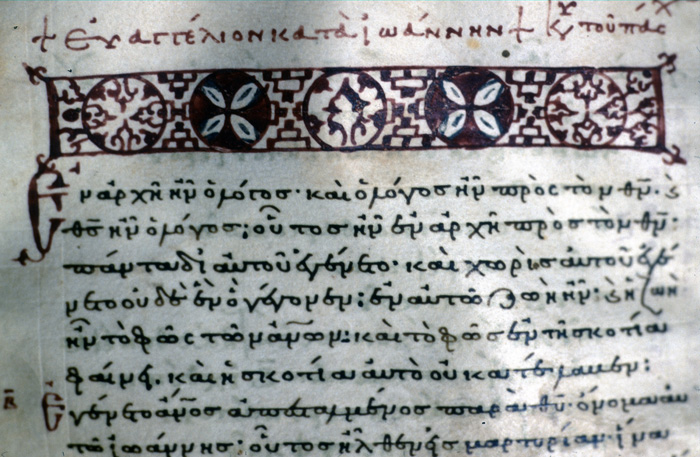 + ΕΥΑΓΓΕΛΙΟΝ ΚΑΤΑ ΙΩΑΝΝΗΝ + τοῦ πάσ
Ἐν ἀρχῆ ἦν ὁ λόγος· καὶ ὁ λόγος ἦν πρὸς τὸν θν· καὶ
θς ἦν ὁ λόγος; οὗτος ἦν ἐν ἀρχῆ πρὸς τὸν θν·
πάντα δι αὐτοῦ ἐγένετο· καὶ χωρὶς αὐτοῦ ἐγέ
νετο οὐδὲ ἓν ὃ γέγονεν; ἐν αὐτῶ ζωὴ ἦν· καὶ ἡ ζωὴ
ἦν τὸ φῶς τῶν ανων; καὶ τὸ φῶς ἐν τῆ σκοτία
φαίνει. καὶ ἡ σκοτία αὐτὸ οὐ κατέλαβεν;
β Ἐγένετο ανος ἀπεσταλμένος παρὰ θυ· ὄνομα αὐ
τῶ ἰωάννης· οὗτος ἦλθεν εἰς μαρτυρίαν· ἵνα